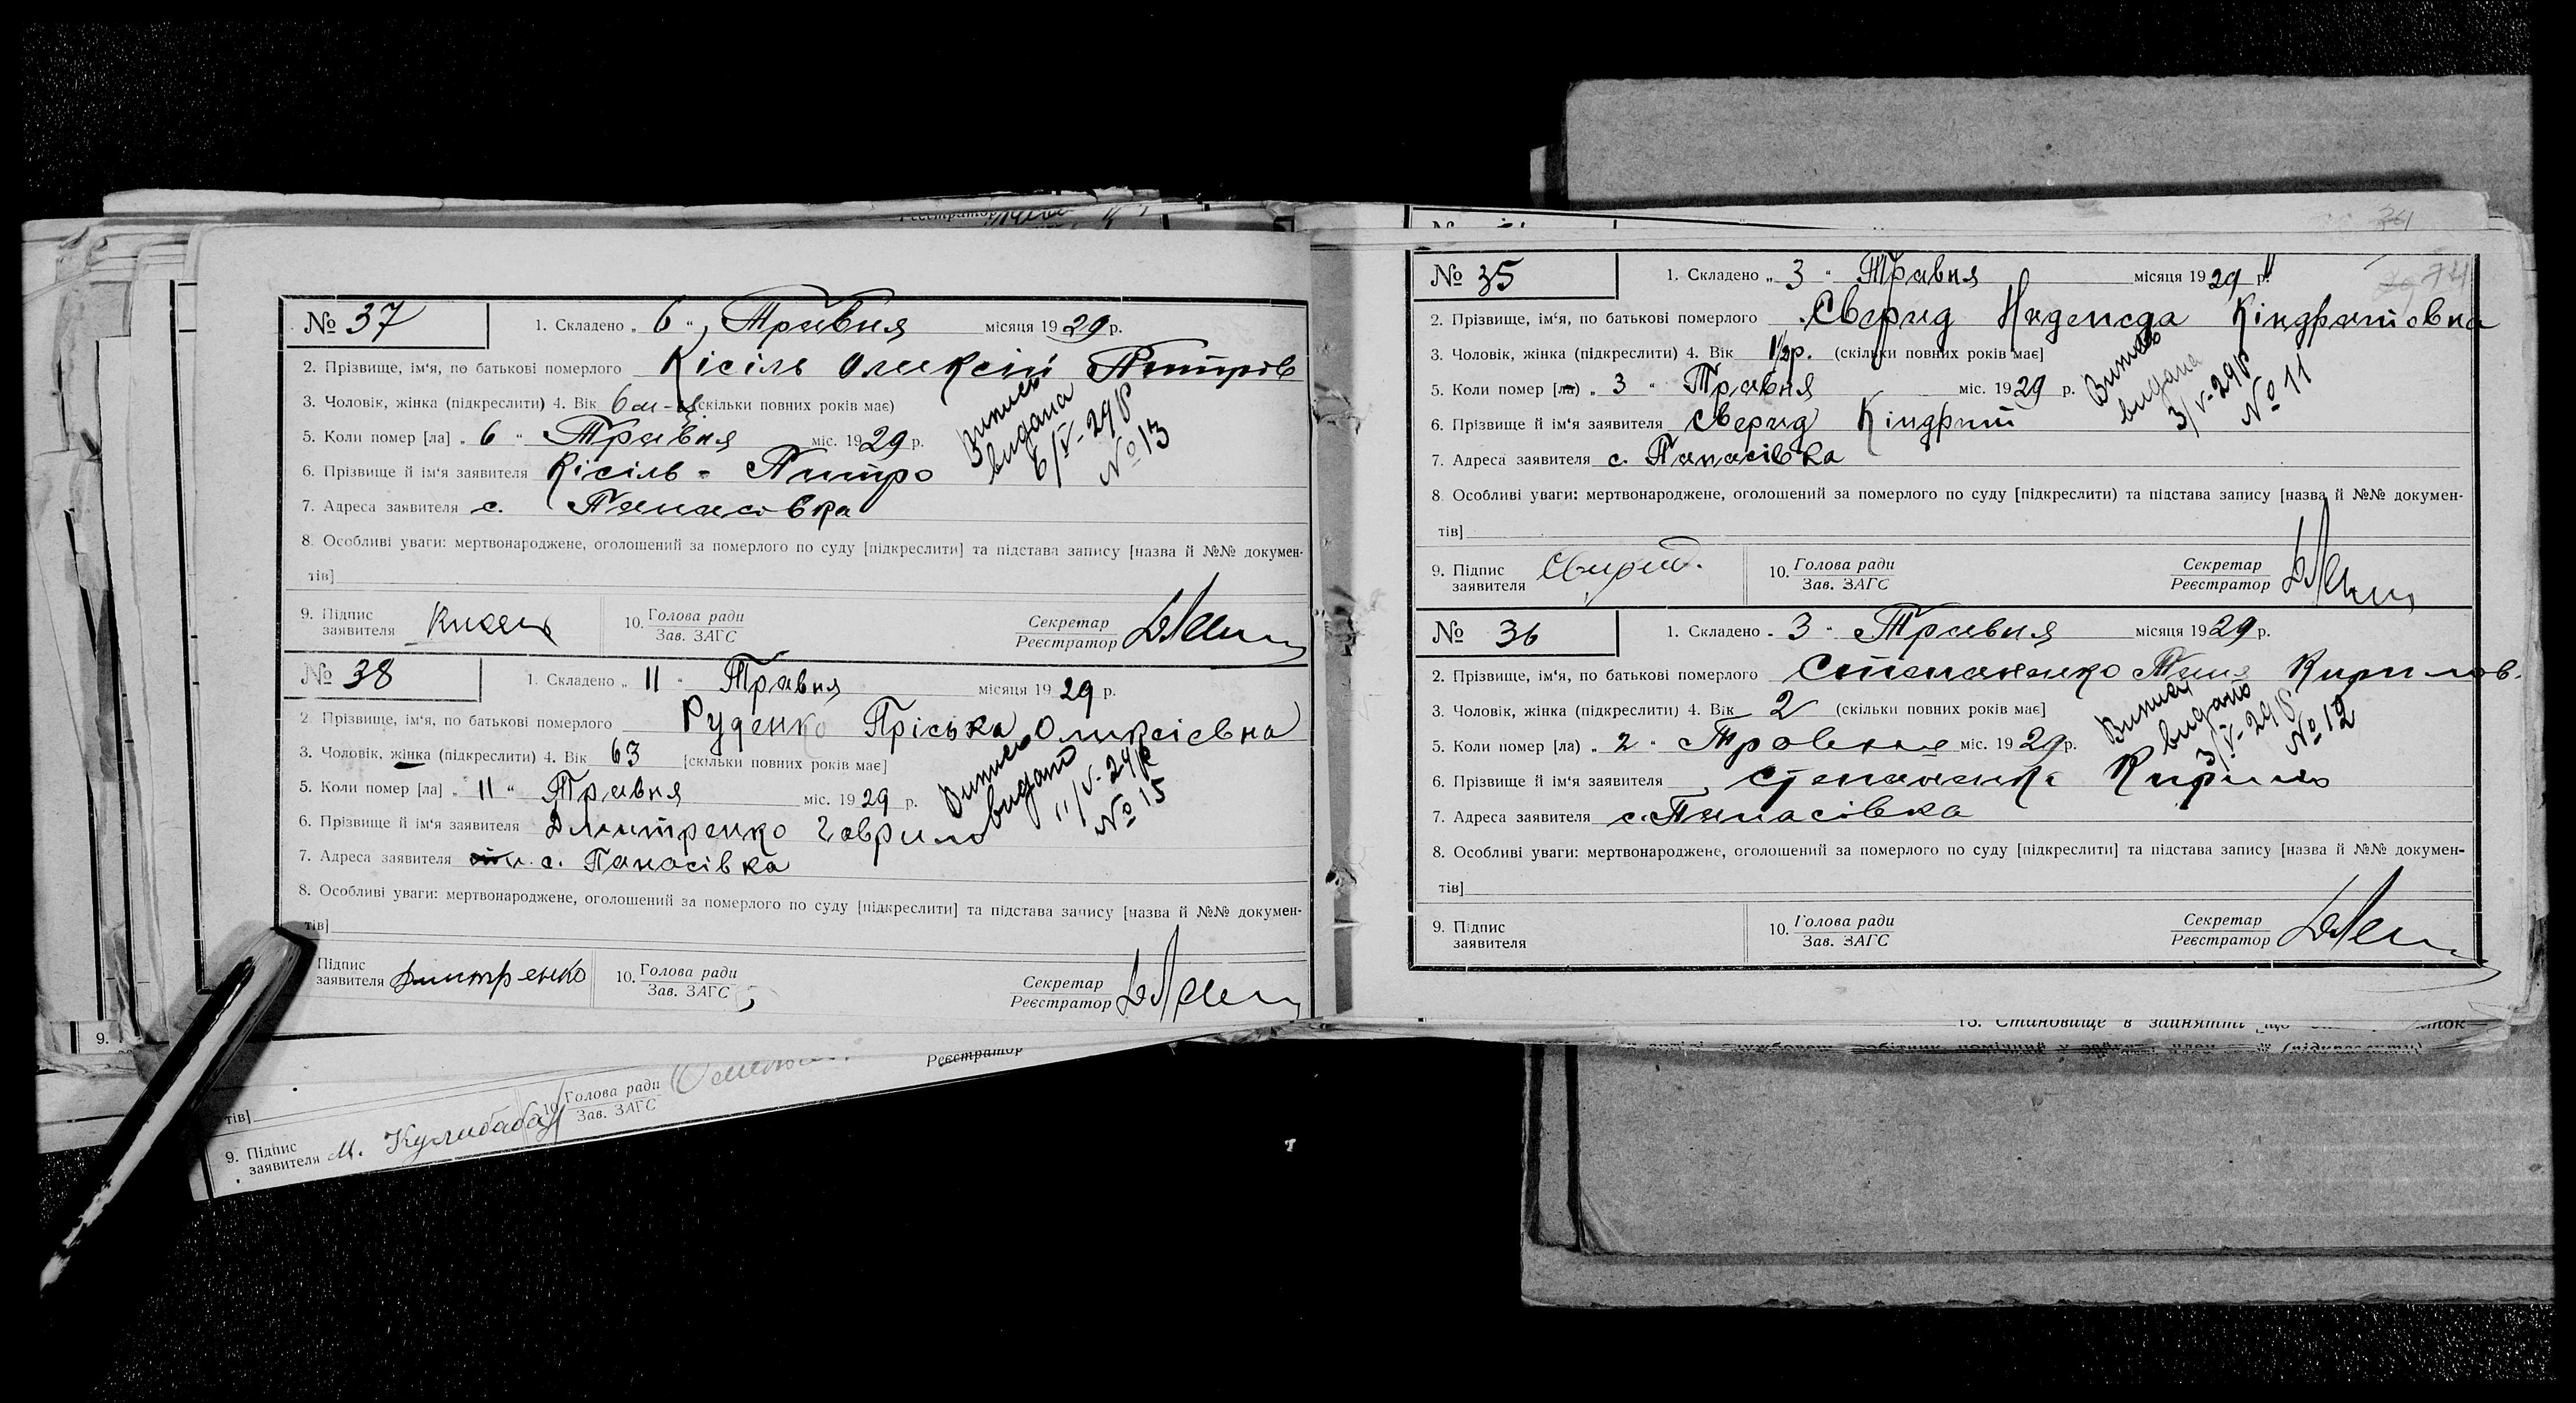 № 37
1. Складено „ 6 “ Травня місяця 1929 р.
2. Прізвище, ім‘я, по батькові померлого Кісіль Олексій Питров
3. Чоловік, жінка (підкреслити) 4. Вік 6 м-ц (скільки повних років має)
5. Коли помер [ла] „ 6 “ Травня міс. 1929 р.
6. Прізвище й ім‘я заявителя Кісіль - Питро
7. Адреса заявителя с. Панасовка
Випись
видана
6/V-29р
№ 13
8. Особливі уваги: мертвонароджене, оголошений за померлого по суду [підкреслити] та підстава запису [назва й №№ докумен-
тів]
9. Підпис заявителя
10. Голова ради
Зав. ЗАГС
Секретар
Реєстратор
№ 38
1. Складено „ 11 “ Травня місяця 1929 р.
2. Прізвище, ім‘я, по батькові померлого Руденко Пріська Оликсієвна
3. Чоловік, жінка (підкреслити) 4. Вік 63 [скільки повних років має]
5. Коли помер [ла] „ 11 “ Травня міс. 1929 р.
6. Прізвище й ім‘я заявителя Дмитренко Гаврило
7. Адреса заявителя с. Панасівка
Випись
видано
11/V-29р
№ 15
8. Особливі уваги: мертвонароджене, оголошений за померлого по суду [підкреслити] та підстава запису [назва й №№ докумен-
тів]
Підпис заявителя Дмитренко
10. Голова ради
Зав. ЗАГС
Секретар
Реєстратор
Реєстратор
тів]
9. Підпис заявителя М. Кулибаба
10. Голова ради
Зав. ЗАГС
№ 35
1. Складено „ 3 “ Травня місяця 1929 р.
2. Прізвище, ім‘я, по батькові померлого Сверид Надежда Кіндратовна
3. Чоловік, жінка (підкреслити) 4. Вік 1½р. (скільки повних років має]
5. Коли помер [ла) „ 3 “ Травня міс. 1929 р.
6. Прізвище й ім‘я заявителя Сверид Кіндрат
7. Адреса заявителя с. Панасівка
Випись
видана
3/V-29р
№ 11
8. Особливі уваги: мертвонароджене, оголошений за померлого по суду [підкреслити) та підстава запису [назва й №№ докумен-
тів]
9. Підпис заявителя Свирид.
10. Голова ради
Зав. ЗАГС
Секретар
Реєстратор
№ 36
1. Складено „ 3 “ Травня місяця 1929 р.
2. Прізвище, ім‘я, по батькові померлого Степаненко Таня Кирилов.
3. Чоловік, жінка (підкреслити) 4. Вік 2 (скільки повних років має]
5. Коли помер [ла) „ 2 “ Травня міс. 1929 р.
6. Прізвище й ім‘я заявителя Степаненко Кирило
7. Адреса заявителя с. Панасівка
Випись
видано
3/V-29р
№ 12
8. Особливі уваги: мертвонароджене, оголошений за померлого по суду [підкреслити] та підстава запису [назва й №№ докумен-
тів]
9. Підпис заявителя
10. Голова ради
Зав. ЗАГС
Секретар
Реєстратор